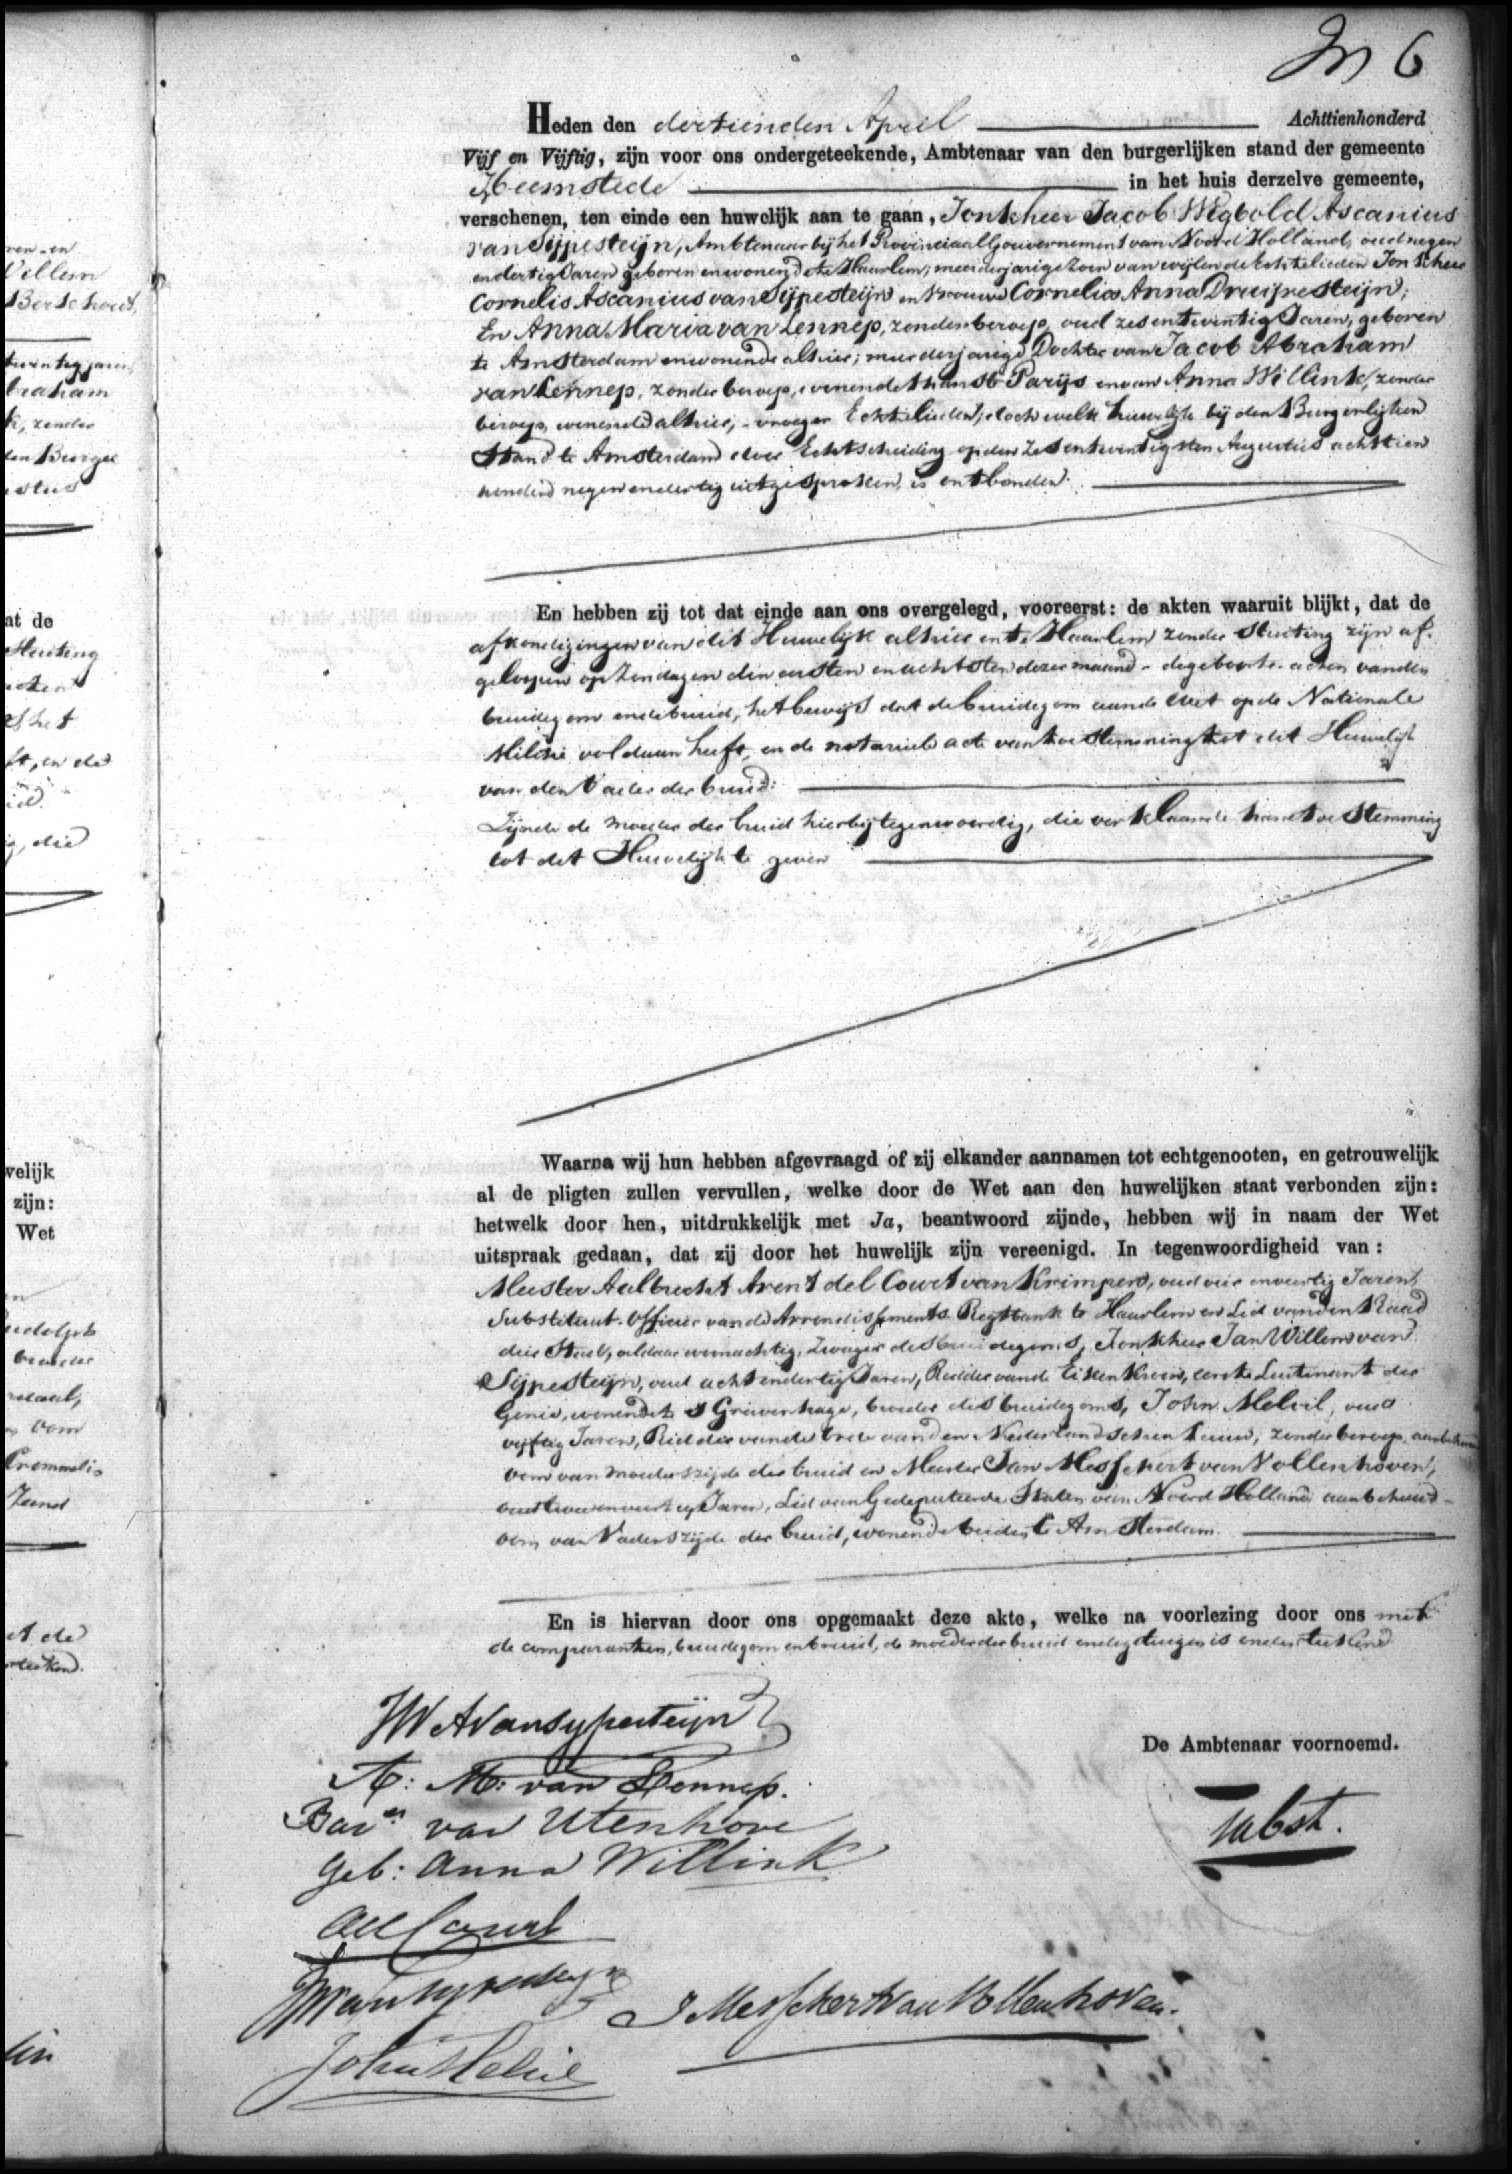 No 6
Heden den dertienden April Achttienhonderd
Vijf en Vijftig, zijn voor ons ondergeteekende, Ambtenaar van den burgerlijken stand der gemeente
Heemstede in het huis derzelve gemeente,
verschenen, ten einde een huwelijk aan te gaan, Jonkheer Jacob Wigbold Ascanius
van Sijpesteijn, Ambtenaar bij het Provinciaal Gouvernement van Noord Holland, oud negen
en dertig Jaren geboren en wonende te Haarlem, meerderjarige Zoon van wijlen de Echtelieden Jonkheer
Cornelis Ascanius van Sijpesteijn en Vrouwe Cornelia Anna Druijvesteijn;
En Anna Maria van Lennep, zonder beroep, oud zes en twintig Jaren, geboren
te Amsterdam en wonende alhier; meerderjarige Dochter van Jacob Abraham
van Lennep, zonder beroep, wonende thans te Parijs en van Anna Willink, zonder
beroep, wonende alhier, vroeger Echtelieden; doch welk huwelijk bij den Burgerlijken
Stand te Amsterdam door Echtscheiding op den zes en twintigsten Augustus achttien
honderd negen en dertig uitgesproken, is ontbonden.
En hebben zij tot dat einde aan ons overgelegd, vooreerst: de akten waaruit blijkt, dat de
afkondigingen van dit Huwelijk alhier en te Haarlem zonder stuiting zijn af-
geloopen op Zondagen den eersten en achtsten dezer maand - de geboorte-acten van den
bruidegom en de bruid, het bewijs dat de bruidegom aan de Wet op de Nationale
Militie voldaan heeft, en de notariele acte van toestemming tot dit Huwelijk
van den Vader der bruid:
Zijnde de moeder der bruid hierbij tegenwoordig, die verklaarde hare toestemming
tot dit Huwelijk te geven
Waarna wij hun hebben afgevraagd of zij elkander aannamen tot echtgenooten, en getrouwelijk
al de pligten zullen vervullen, welke door de Wet aan den huwelijken staat verbonden zijn:
hetwelk door hen, uitdrukkelijk met Ja, beantwoord zijnde, hebben wij in naam der Wet
uitspraak gedaan, dat zij door het huwelijk zijn vereenigd. In tegenwoordigheid van:
Meester Aalbrecht Arent del Court van Krimpen, oud vier en veertig Jaren,
Substituut-Officier van de Arrondissements Regtbank te Haarlem en Lid van den Raad
dier Stad, aldaar woonachtig, Zwager des bruidegoms, Jonkheer Jan Willem van
Sijpesteijn, oud acht en dertig Jaren, Ridder van de Eiken Kroon, eerste Luitenant der
Genie, wonende te s Gravenhage, broeder des bruidegoms, John Melvil, oud
vijftig Jaren, Ridder van de Orde van den Nederlandschen Leeuw, zonder beroep, aanbehuwd
oom van moeders zijde der bruid en Meester Jan Messchert van Vollenhoven,
oud twee en veertig Jaren, Lid van Gedeputeerde Staten van Noord Holland aanbehuwd-
oom van Vaders zijde der bruid, wonende beiden te Amsterdam.
En is hiervan door ons opgemaakt deze akte, welke na voorlezing door ons met
de comparanten, bruidegom en bruid, de moeder der bruid en de getuigen is onderteekend
JWA van Sypesteijn
A: M: van Lennep.
Bar<sup>es</sup> van Utenhove
geb: Anna Willink
De Ambtenaar voornoemd.
Tabst.
del Court
JW van Sypesteyn
J Messchert van Vollenhoven.
John Melvil